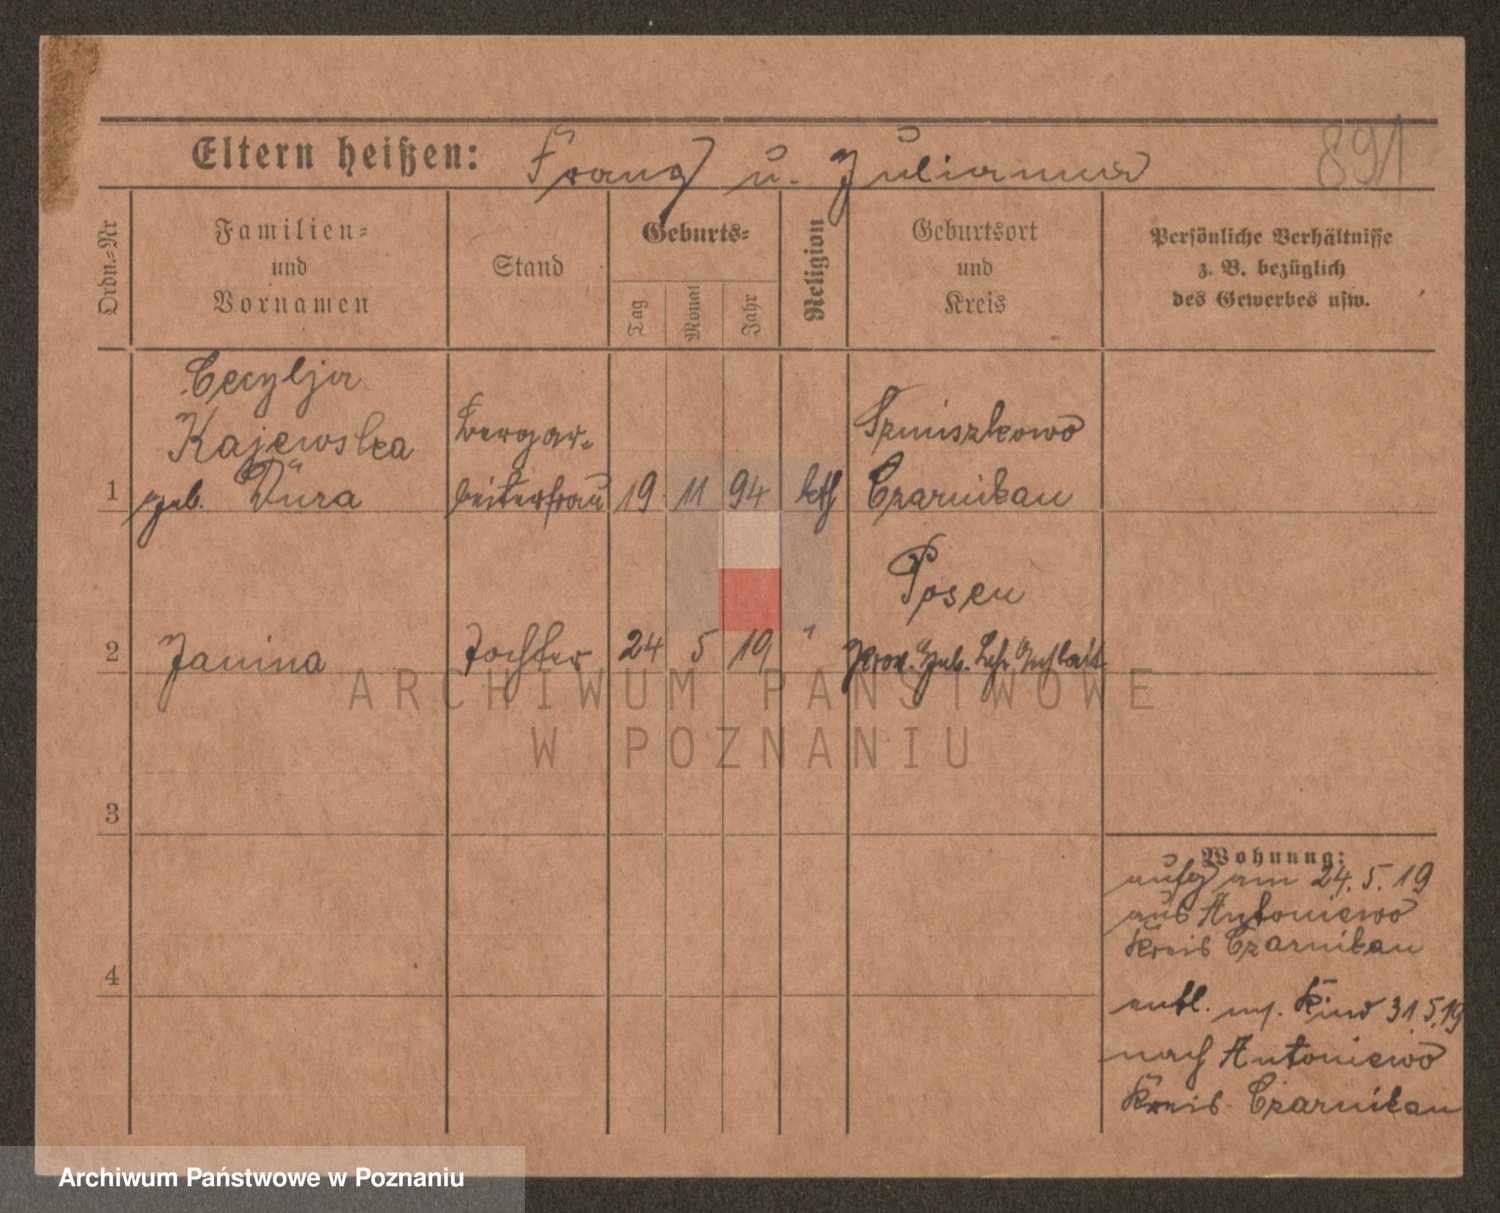 Eltern heißen: Franz u. Julianna
891
Ordn.-Nr
Familien-
und
Vornamen
Stand
Geburts-
Tag
Monat
Jahr
Religion
Geburtsort
und
Kreis
Persönliche Verhältnisse
z. B. bezüglich
des Gewerbes usw.
Cecylja
Kajewska
1 geb. Dura
Bergar-
beiterfrau
19 11 94 kth
Smiszkowo
Czarnikau
2 Janina Tochter 24 5 19 "
Posen
Prov. Heb. Lehr.
3
4
Wohnung:
aufg am 24.5.19
aus Antoniewo
Kreis Czarnikau
entl. m. Kind 31.5.19
nach Antoniewo
Kreis Czarnikau
ARCHIWUM PAŃSTWOWE
W POZNANIU
Archiwum Państwowe w Poznaniu